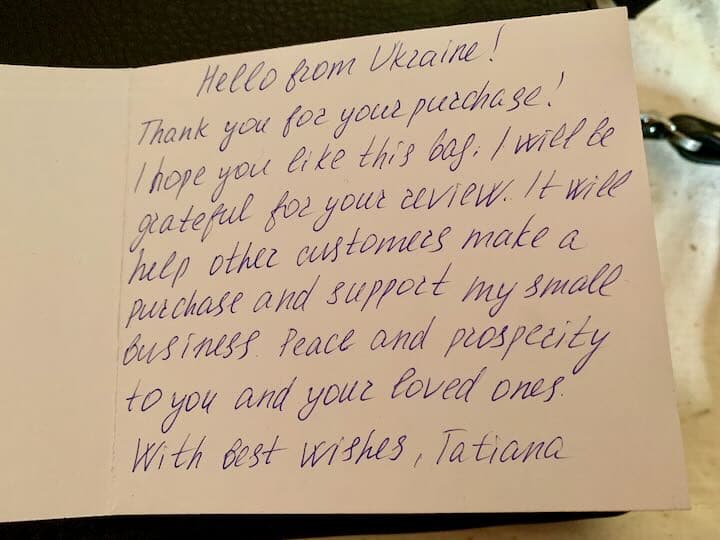 Hello from Ukraine!
Thank you for your purchase!
I hope you like this bag. I will be
grateful for your review. It will
help other customers make a
purchase and support my small
business. Peace and prosperity
to you and your loved ones.
With best wishes, Tatiana